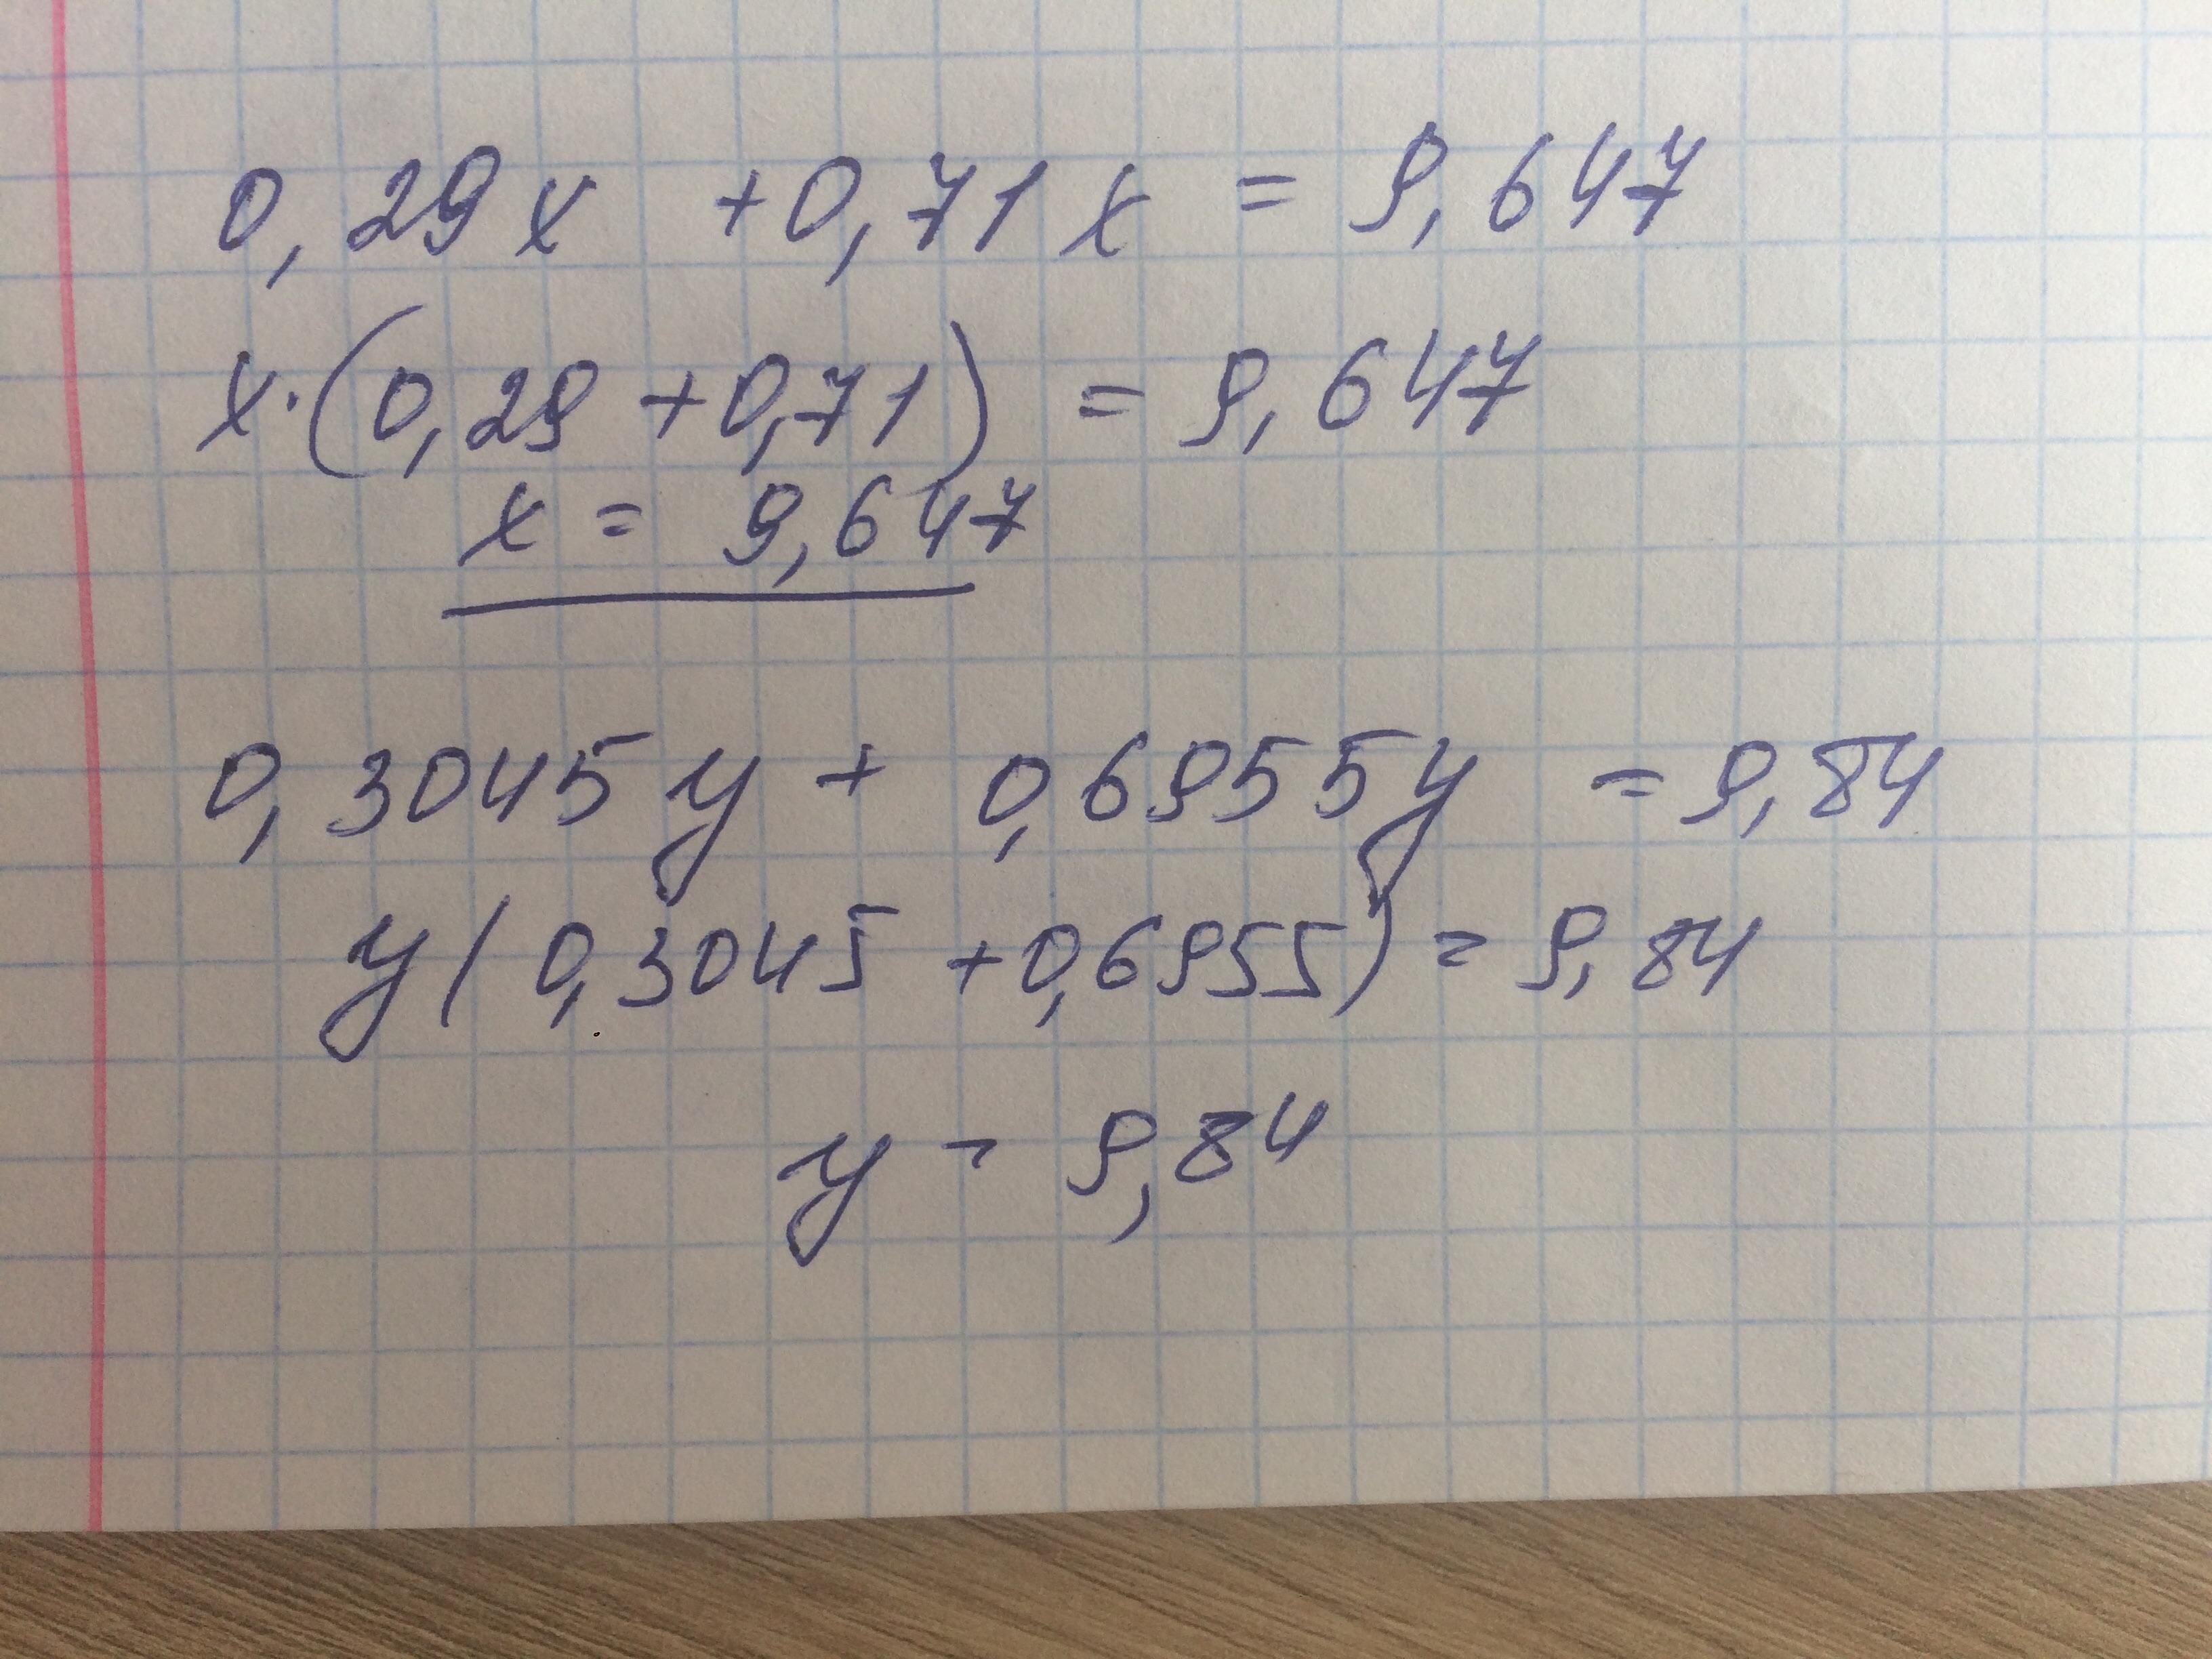 0,29x + 0,71x = 9,647
x·(0,29 + 0,71) = 9,647
x = 9,647
0,3045y + 0,6955y = 9,84
y(0,3045 + 0,6955) = 9,84
y = 9,84